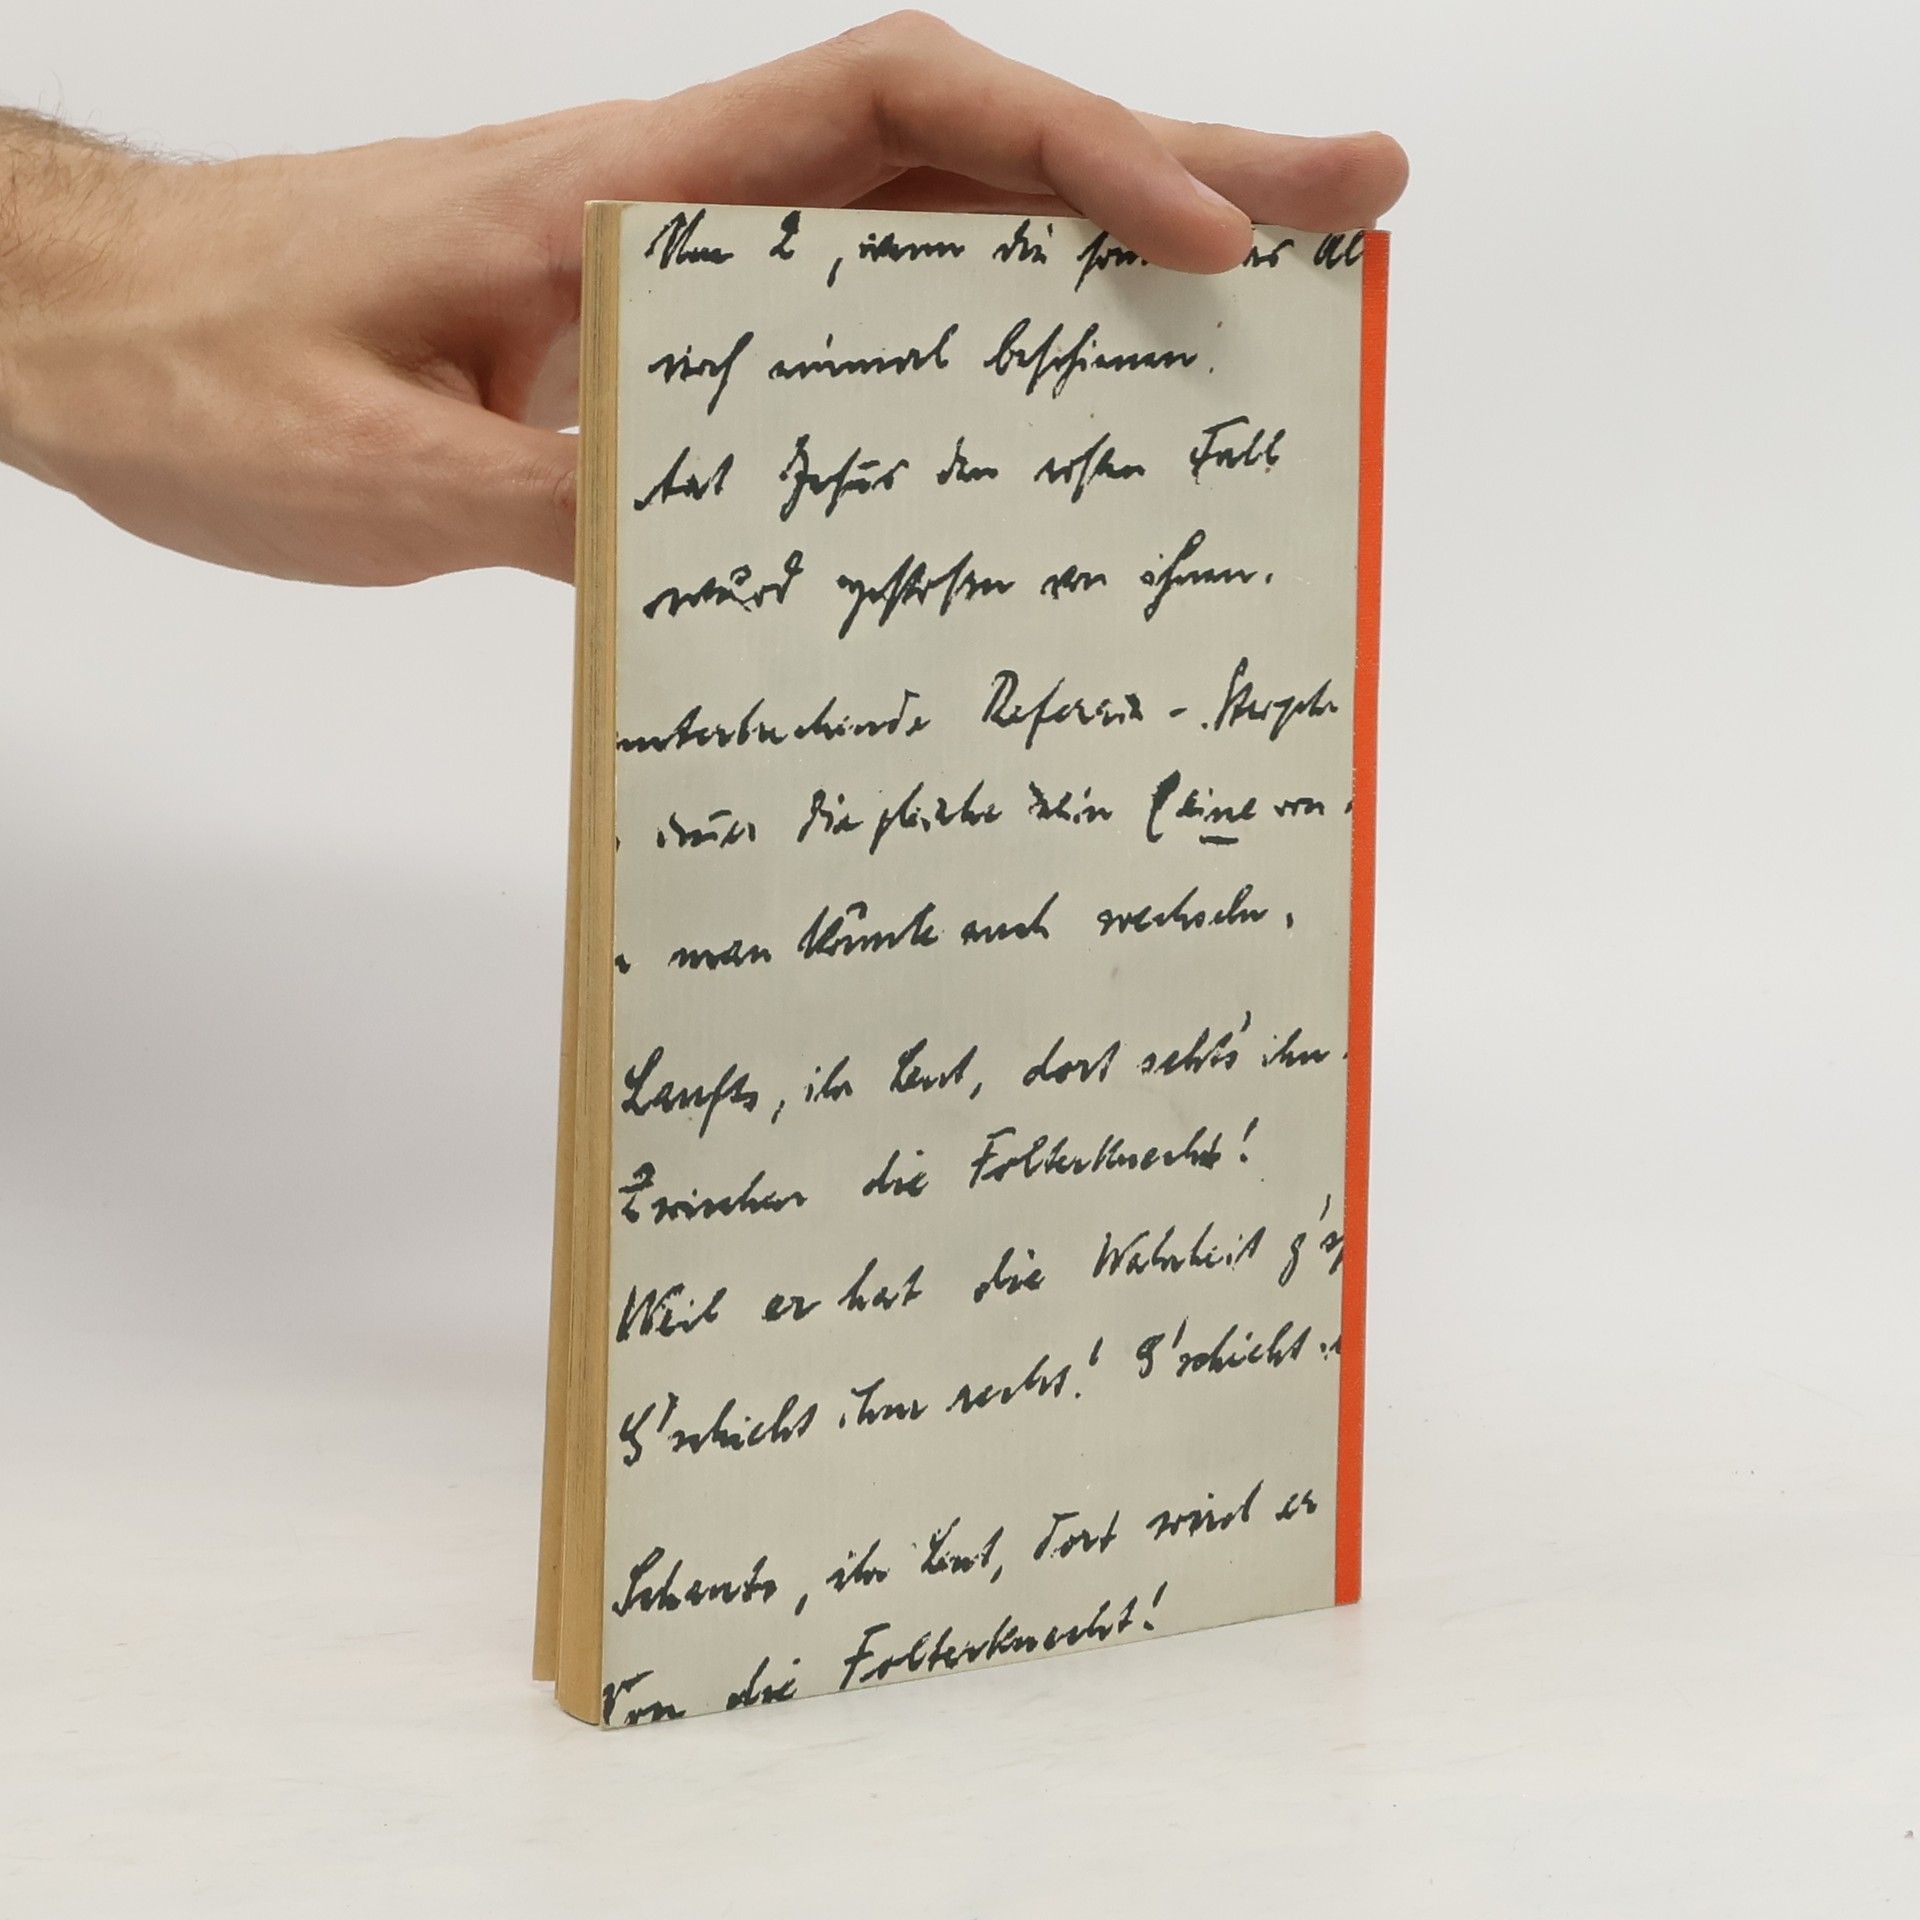 Um 2, wenn die son
noch einmal beschienen.
tat Jesus den ersten Fall
wurd gestosen von ihnen.
unterbrechende Refrain -
die gleiche sein eine von
man könnte auch wechseln.
Laufts, ihr Leut, dort sehts' ihn
Zwischen die Folterknecht!
Weil er hat die Wahrheit g's
G'schicht ihm recht! G'schicht
Schauts, ihr Leut, dort wird er
Von die Folterknecht!